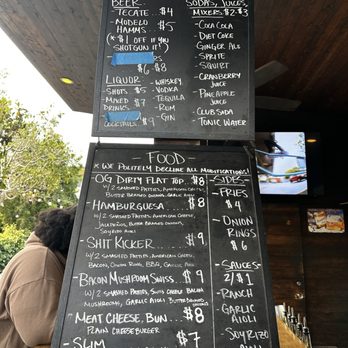 BEER
TECATE $4
MODELO $5
HAMMS
(*$1 OFF IF YOU
SHOTGUN IT!)
$6 $8
LIQUOR
SHOTS $5
MIXED
DRINKS $7
COCKTAILS $9
- WHISKEY
- VODKA
- TEQUILA
- RUM
- GIN
SODAS, JUICES,
MIXERS $2-$3
- COCA COLA
- DIET COKE
- GINGER ALE
- SPRITE
- SQUIRT
- CRANBERRY
JUICE
- PINEAPPLE
JUICE
- CLUB SODA
- TONIC WATER
- FOOD -
* WE POLITELY DECLINE ALL MODIFICATIONS!
OG DIRTY FLAT TOP $8
W/ 2 SMASHED PATTIES, AMERICAN CHEESE,
BUTTER BRAISED ONIONS, GARLIC AIOLI
- HAMBURGUESA $8
W/ 2 SMASHED PATTIES, AMERICAN CHEESE,
JALAPEÑOS, BUTTER BRAISED ONIONS,
SOYRIZO AIOLI
- SHIT KICKER $9
W/ 2 SMASHED PATTIES, AMERICAN CHEESE,
BACON, ONION RING, BBQ, GARLIC AIOLI
- BACON MUSHROOM SWISS $9
W/ 2 SMASHED PATTIES, SWISS CHEESE, BACON
MUSHROOMS, GARLIC AIOLI, BUTTER BRAISED
- MEAT. CHEESE. BUN... $8
PLAIN CHEESEBURGER
- SLIM $7
- SIDES -
- FRIES
$4
- ONION
RINGS
$6
- SAUCES -
2/$1
- RANCH
- GARLIC
AIOLI
- SOYRIZO